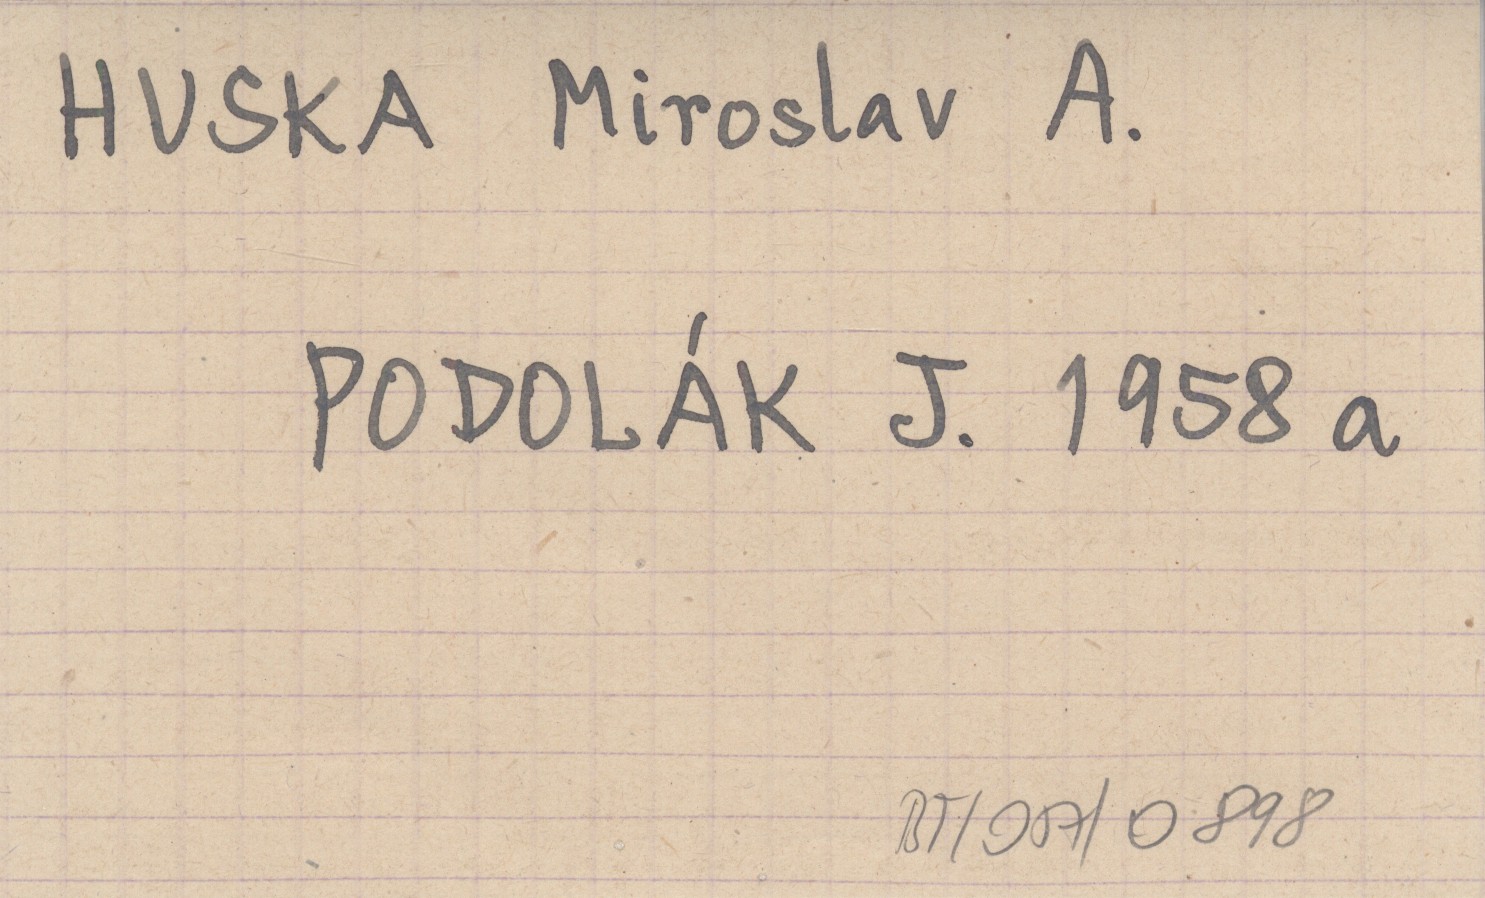 HUSKA Miroslav A.
PODOLÁK J. 1958 a
0898